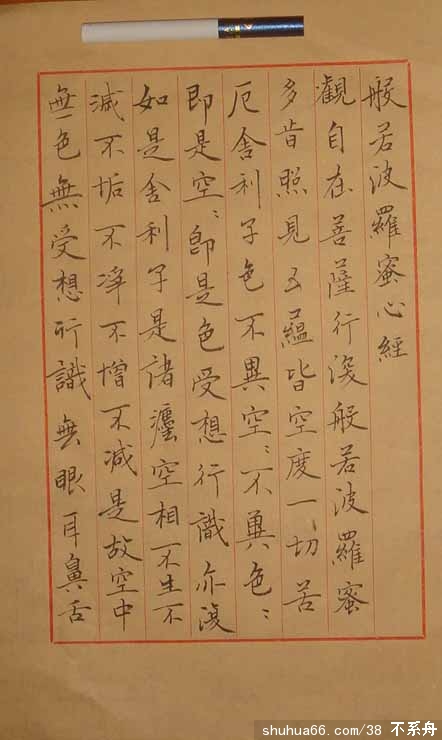 般若波羅蜜心經
觀自在菩薩行深般若波羅蜜
多旹照見五蘊皆空度一切苦
厄舍利子色不異空〻不異色〻
即是空〻即是色受想行識亦復
如是舍利子是諸灋空相不生不
滅不垢不淨不增不減是故空中
無色無受想行識無眼耳鼻舌
shuhua66.com/38 不系舟